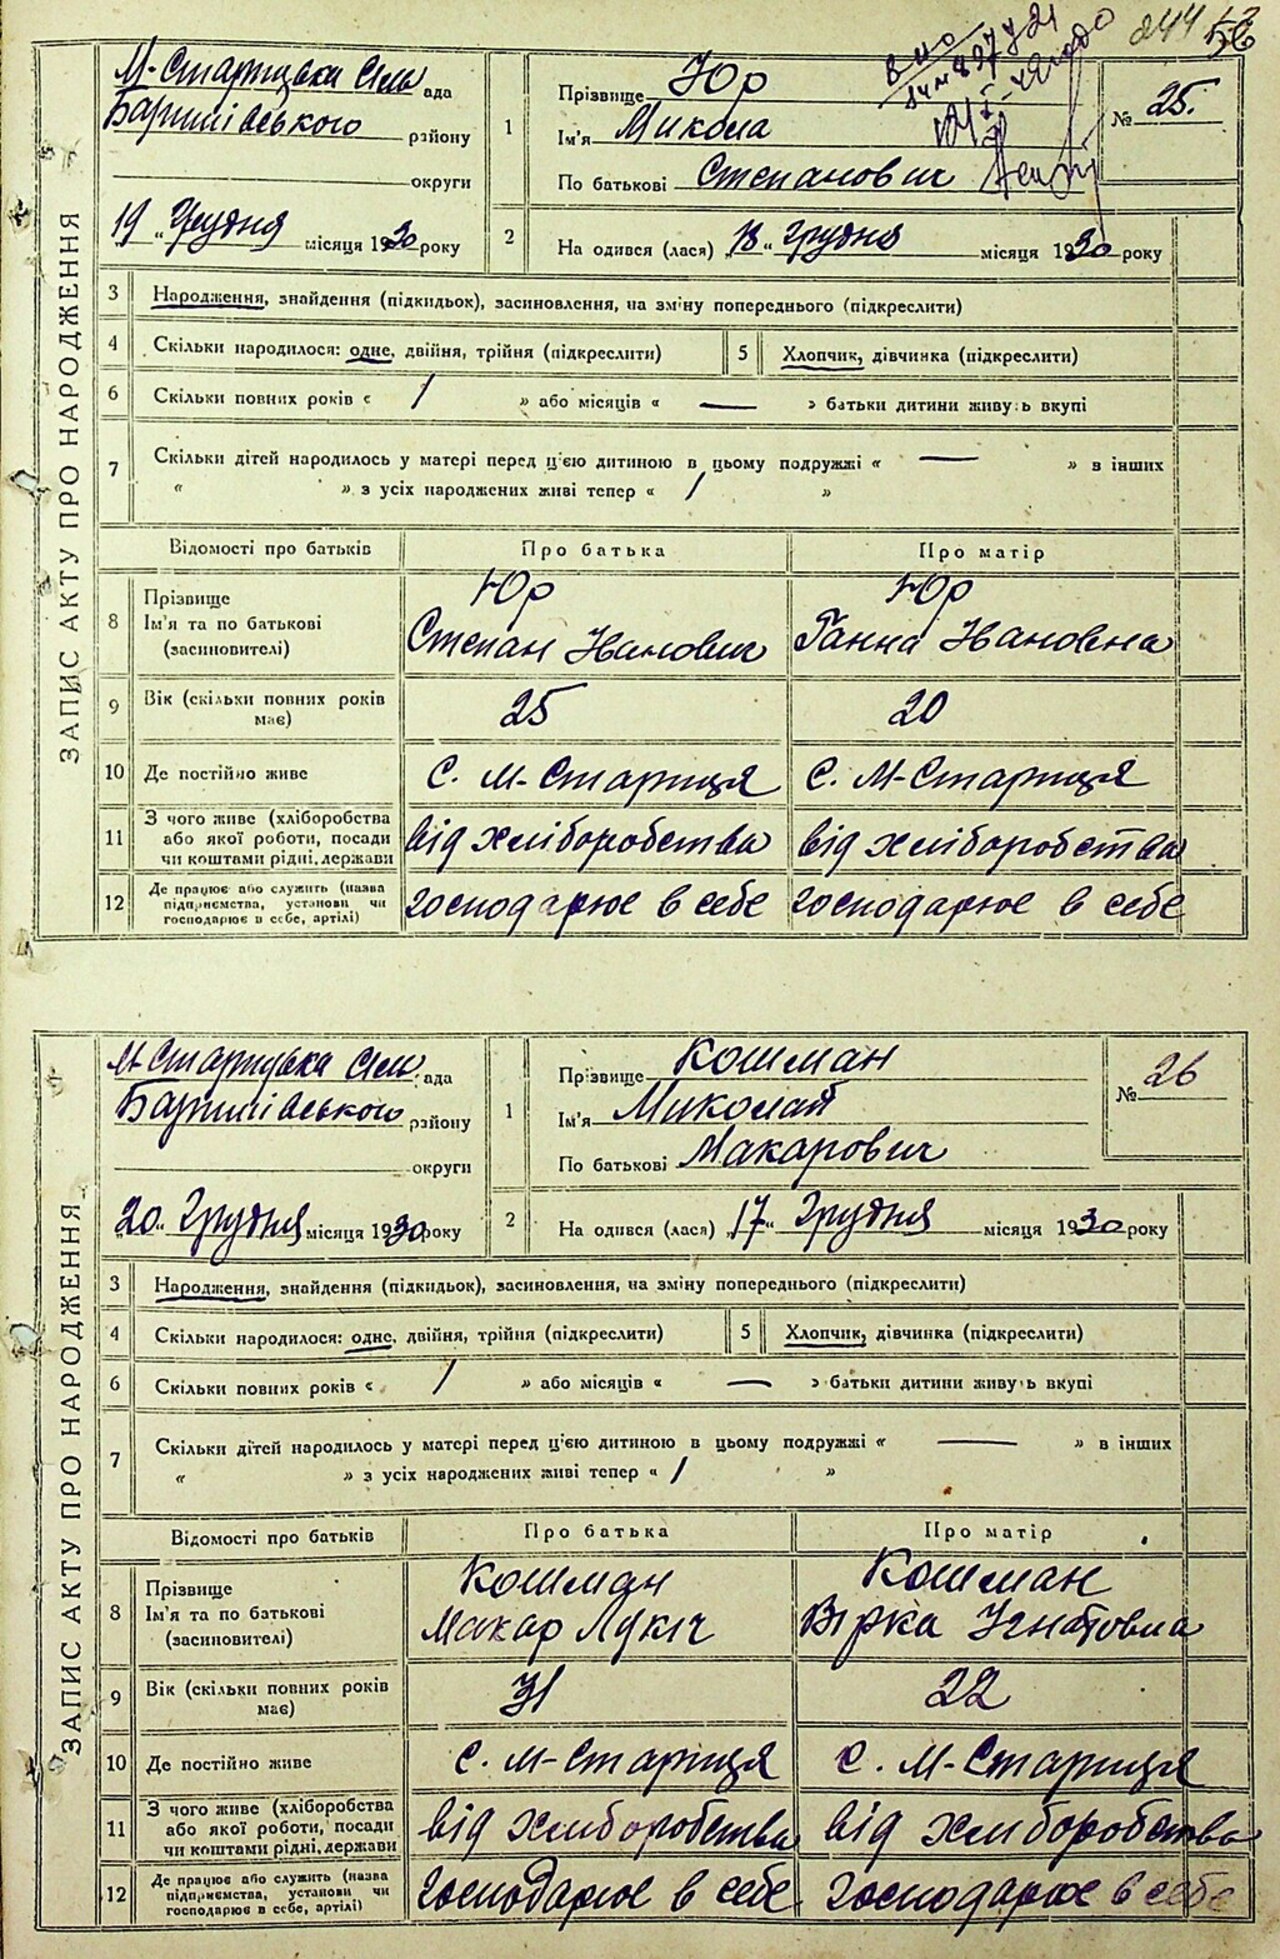 244
ЗАПИС АКТУ ПРО НАРОДЖЕННЯ
М-Старицька Сільрада
Баришівського району
округи
19 „ Грудня місяця 1930 року
1 Прізвище Юр
Ім'я Микола
По батькові Степанович
№ 25.
2 На одився (лася) „18 „ Грудня місяця 1930 року
3 Народження, знайдення (підкидьок), засиновлення, на зміну попереднього (підкреслити)
4 Скільки народилося: одне, двійня, трійня (підкреслити) 5 Хлопчик, дівчинка (підкреслити)
6 Скільки повних років « 1 » або місяців « — » батьки дитини живуть вкупі
7 Скільки дітей народилось у матері перед ц'єю дитиною в цьому подружжі « — » в інших
« » з усіх народжених живі тепер « 1 »
Відомості про батьків Про батька Про матір
8 Прізвище Ім'я та по батькові (засиновителі) Юр Степан Іванович Юр Ганна Івановна
9 Вік (скільки повних років має) 25 20
10 Де постійно живе с. М-Стариця с. М-Стариця
11 З чого живе (хліборобства або якої роботи, посади чи коштами рідні, держави від хліборобства від хліборобства
12 Де працює або служить (назва підприємства, установи чи господарює в себе, артілі) господарює в себе господарює в себе
ЗАПИС АКТУ ПРО НАРОДЖЕННЯ
М-Старицька Сільрада
Баришівського району
округи
„20 „ Грудня місяця 1930 року
1 Прізвище Кошман
Ім'я Миколай
По батькові Макарович
№ 26
2 На одився (лася) „17 „ Грудня місяця 1930 року
3 Народження, знайдення (підкидьок), засиновлення, на зміну попереднього (підкреслити)
4 Скільки народилося: одне, двійня, трійня (підкреслити) 5 Хлопчик, дівчинка (підкреслити)
6 Скільки повних років « 1 » або місяців « — » батьки дитини живуть вкупі
7 Скільки дітей народилось у матері перед ц'єю дитиною в цьому подружжі « — » в інших
« » з усіх народжених живі тепер « 1 »
Відомості про батьків Про батька Про матір
8 Прізвище Ім'я та по батькові (засиновителі) Кошман Макар Лукіч Кошман Вірка Ігнатовна
9 Вік (скільки повних років має) 31 22
10 Де постійно живе с. М-Стариця с. М-Стариця
11 З чого живе (хліборобства або якої роботи, посади чи коштами рідні, держави від хліборобства від хліборобства
12 Де працює або служить (назва підприємства, установи чи господарює в себе, артілі) господарює в себе господарює в себе